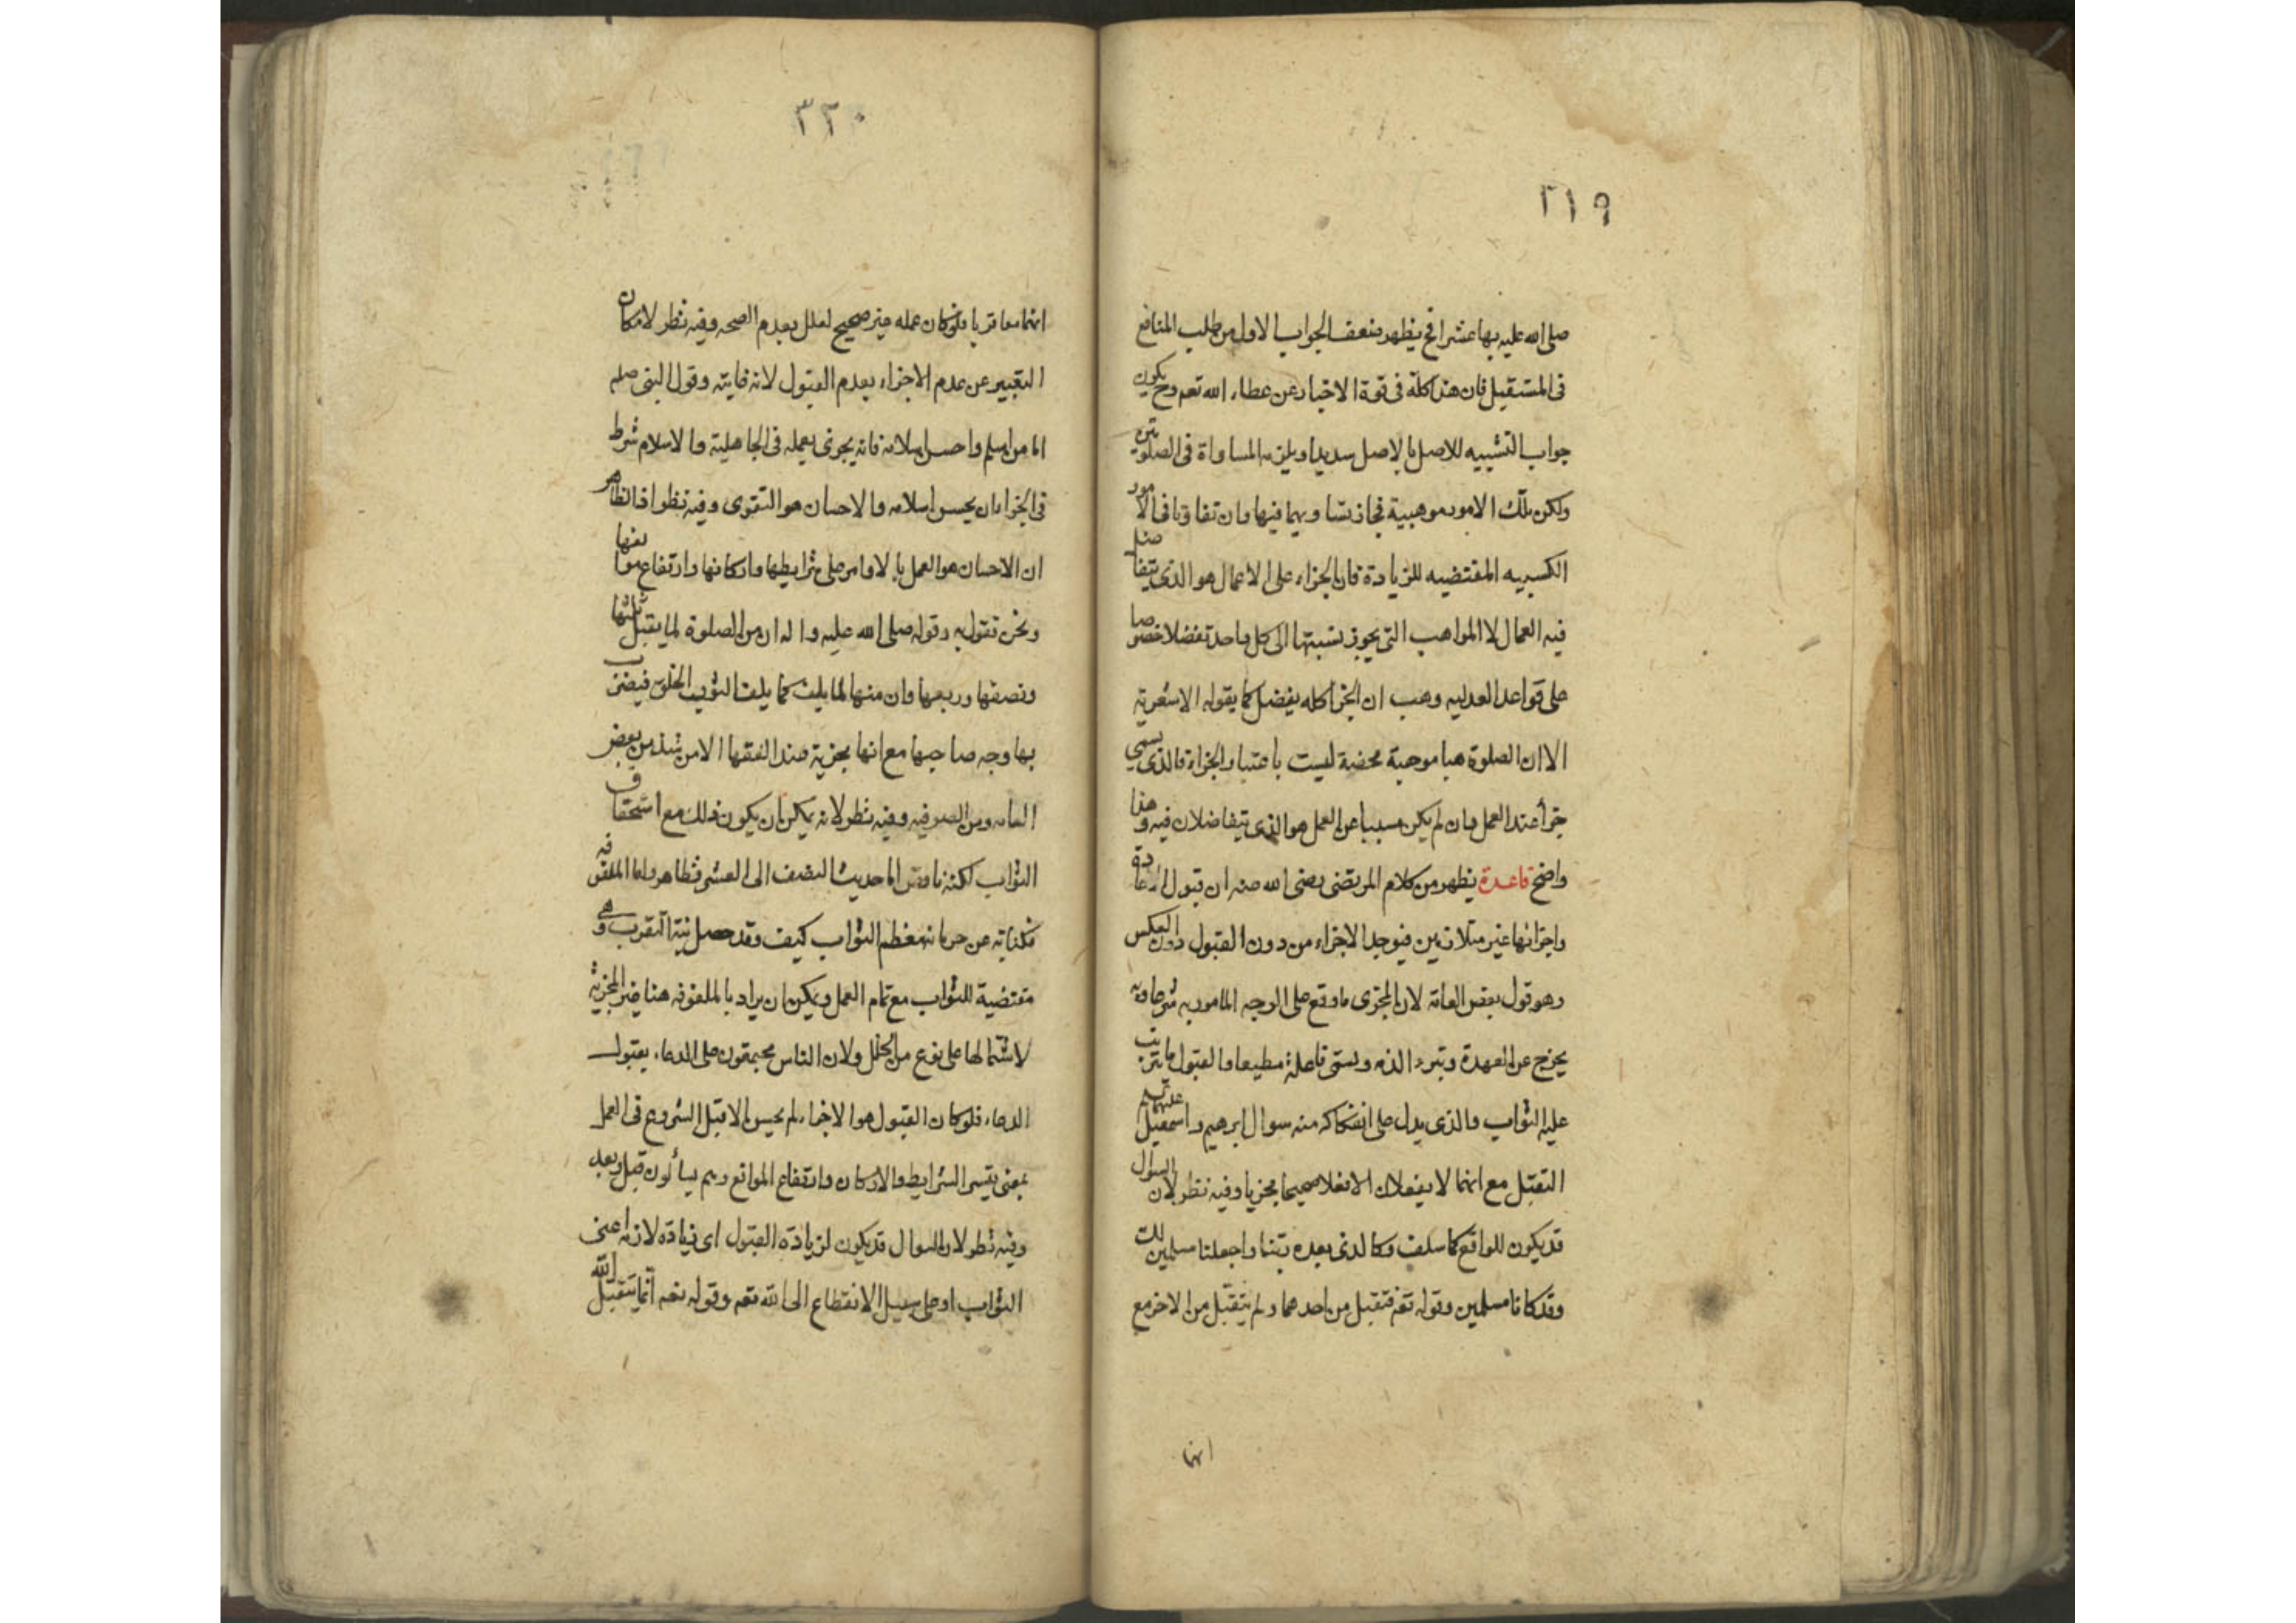 ٢١٩
صلى الله عليه بها عشرا فح يظهر ضعف الجواب الاول من طلب المنافع
فى المستقبل فان هذا كله فى قوة الاخبار عن عطاء الله تعم وح يكون
جواب التشبيه للاصل بالاصل سديدا ويلزمه المساواة فى الصلوتين
ولكن تلك الامور موهبية فجاز تساويهما فيها وان تفاوتا فى الامور
الكسبيه المقتضيه للزيادة فان الجزاء على الاعمال هو الذى يتفاضل
فيه العمال لا المواهب التى يجوز نسبتها الى كل واحد تفضلا خصوصا
على قواعد العدليه وهب ان الجزا كله يفضل كما يقوله الاشعرية
الا ان الصلوة هبا موهبة محضة ليست باعتبار الجزاء فالذى يسمى
جزأ عند العمل وان لم يكن مسببا عن العمل هو الذى يتفاضلان فيه وهذا
واضح قاعدة يظهر من كلام المرتضى رضى الله عنه ان قبول العبادة
واجزائها غير متلازمين فيوجد الاجزاء من دون القبول دون العكس
وهو قول بعض العامة لان المجزى ما وقع على الوجه المامور به شرعا وبه
يخرج عن العهدة وتبرء الذمه ويسمى فاعله مطيعا والقبول ما يترتب
عليه الثواب والذى يدل على انفكاكه منه سوال ابرهيم واسمعيل عليهما
التقبل مع انهما لا يفعلان الا فعلا صحيحا مجزيا وفيه نظر لان السوال
قد يكون للواقع كما سلف وكالذى بعده ربنا واجعلنا مسلمين لك
وقد كانا مسلمين وقوله تعم فتقبل من احدهما ولم يتقبل من الاخر مع
انهما
٣٢٠
انهما معا قربا فلو كان عمله غير صحيح لعلل بعدم الصحه وفيه نظر لامكان
التعبير عن عدم الاجزاء بعدم القبول لانه غايته وقول النبى صلم
اما من اسلم واحسن اسلامه فانه يجزى بعمله فى الجاهلية والاسلام شرط
فى الجزا ان يحسن اسلامه والاحسان هو التقوى وفيه نظر اذ الظاهر
ان الاحسان هو العمل بالاوامر على شرايطها واركانها وارتفاع موانعها
ونحن نقول به وقوله صلى الله عليه واله ان من الصلوة لما يقبل ثلثها
ونصفها وربعها وان منها لما يلف كما يلف الثوب الخلق فيضرب
بها وجه صاحبها مع انها مجزية عند الفقها الا من شذ من بعض
العامه ومن الصوفيه وفيه نظر لانه يمكن ان يكون ذلك مع استحقاق
الثواب لكنه ناقص اما حديث النصف الى العشر فظاهر واما الملفوفه
فكناية عن حرمانه معظم الثواب كيف وقد حصل نية التقرب وهى
مقتضية للثواب مع تمام العمل ويمكن ان يراد بالملفوفه هنا غير المجزية
لاشتمالها على نوع من الخلل ولان الناس مجمعون على الدعاء بقبول
الدعاء فلو كان القبول هو الاجزاء لم يحسن الا قبل الشروع فى العمل
بمعنى تيسر الشرايط والاركان وارتفاع الموانع وهم يسألون قبل وبعد
وفيه نظر لان السوال قد يكون لزيادة القبول اى زيادة لازمه اعنى
الثواب او على سبيل الانقطاع الى الله تعم وقوله تعم انما يتقبل الله